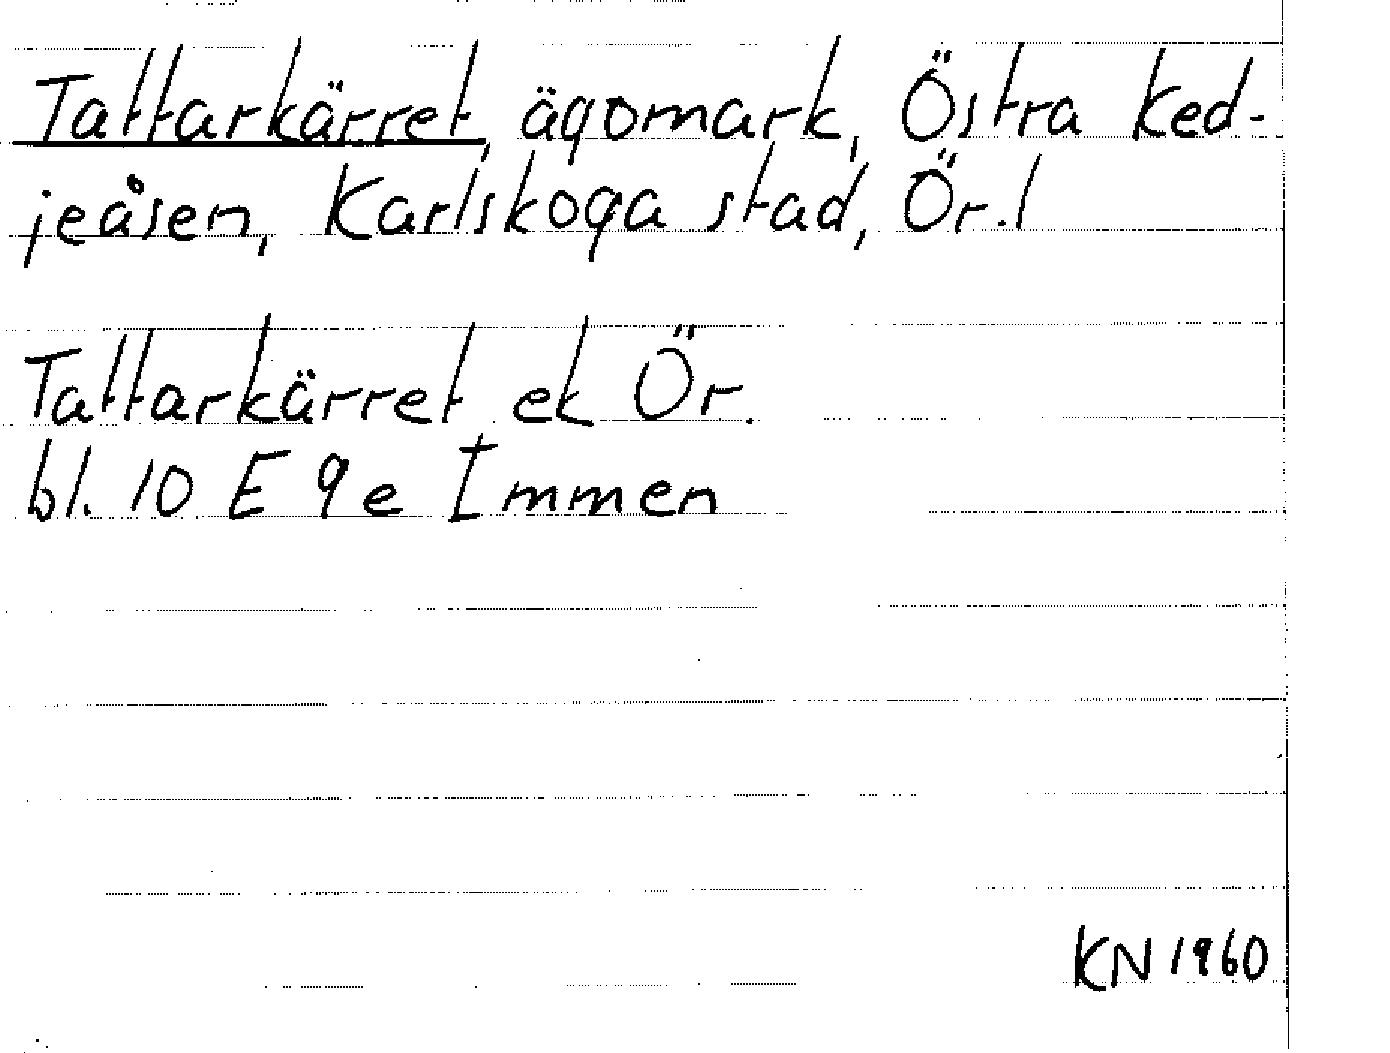 Tattarkärret, ägomark, Östra Ked-
jeåsen, Karlskoga stad, Ör. l
Tattarkärret ek Ör.
bl. 10 E 9e Immen
KN 1960